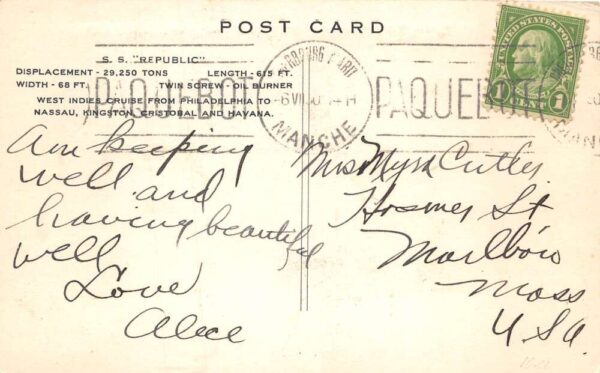 POST CARD
S. S. "REPUBLIC"
DISPLACEMENT - 29,250 TONS LENGTH - 615 FT.
WIDTH - 68 FT. TWIN SCREW - OIL BURNER
WEST INDIES CRUISE FROM PHILADELPHIA TO
NASSAU, KINGSTON, CRISTOBAL AND HAVANA.
PAQUEBOT
MANCHE
PAQUEBOT
UNITED STATES POSTAGE
1 CENT 1
Am keeping
well and
having beautiful
well
Love
Alice
Mrs Myra Cutler
Hosmer St
Marlboro
Mass
USA